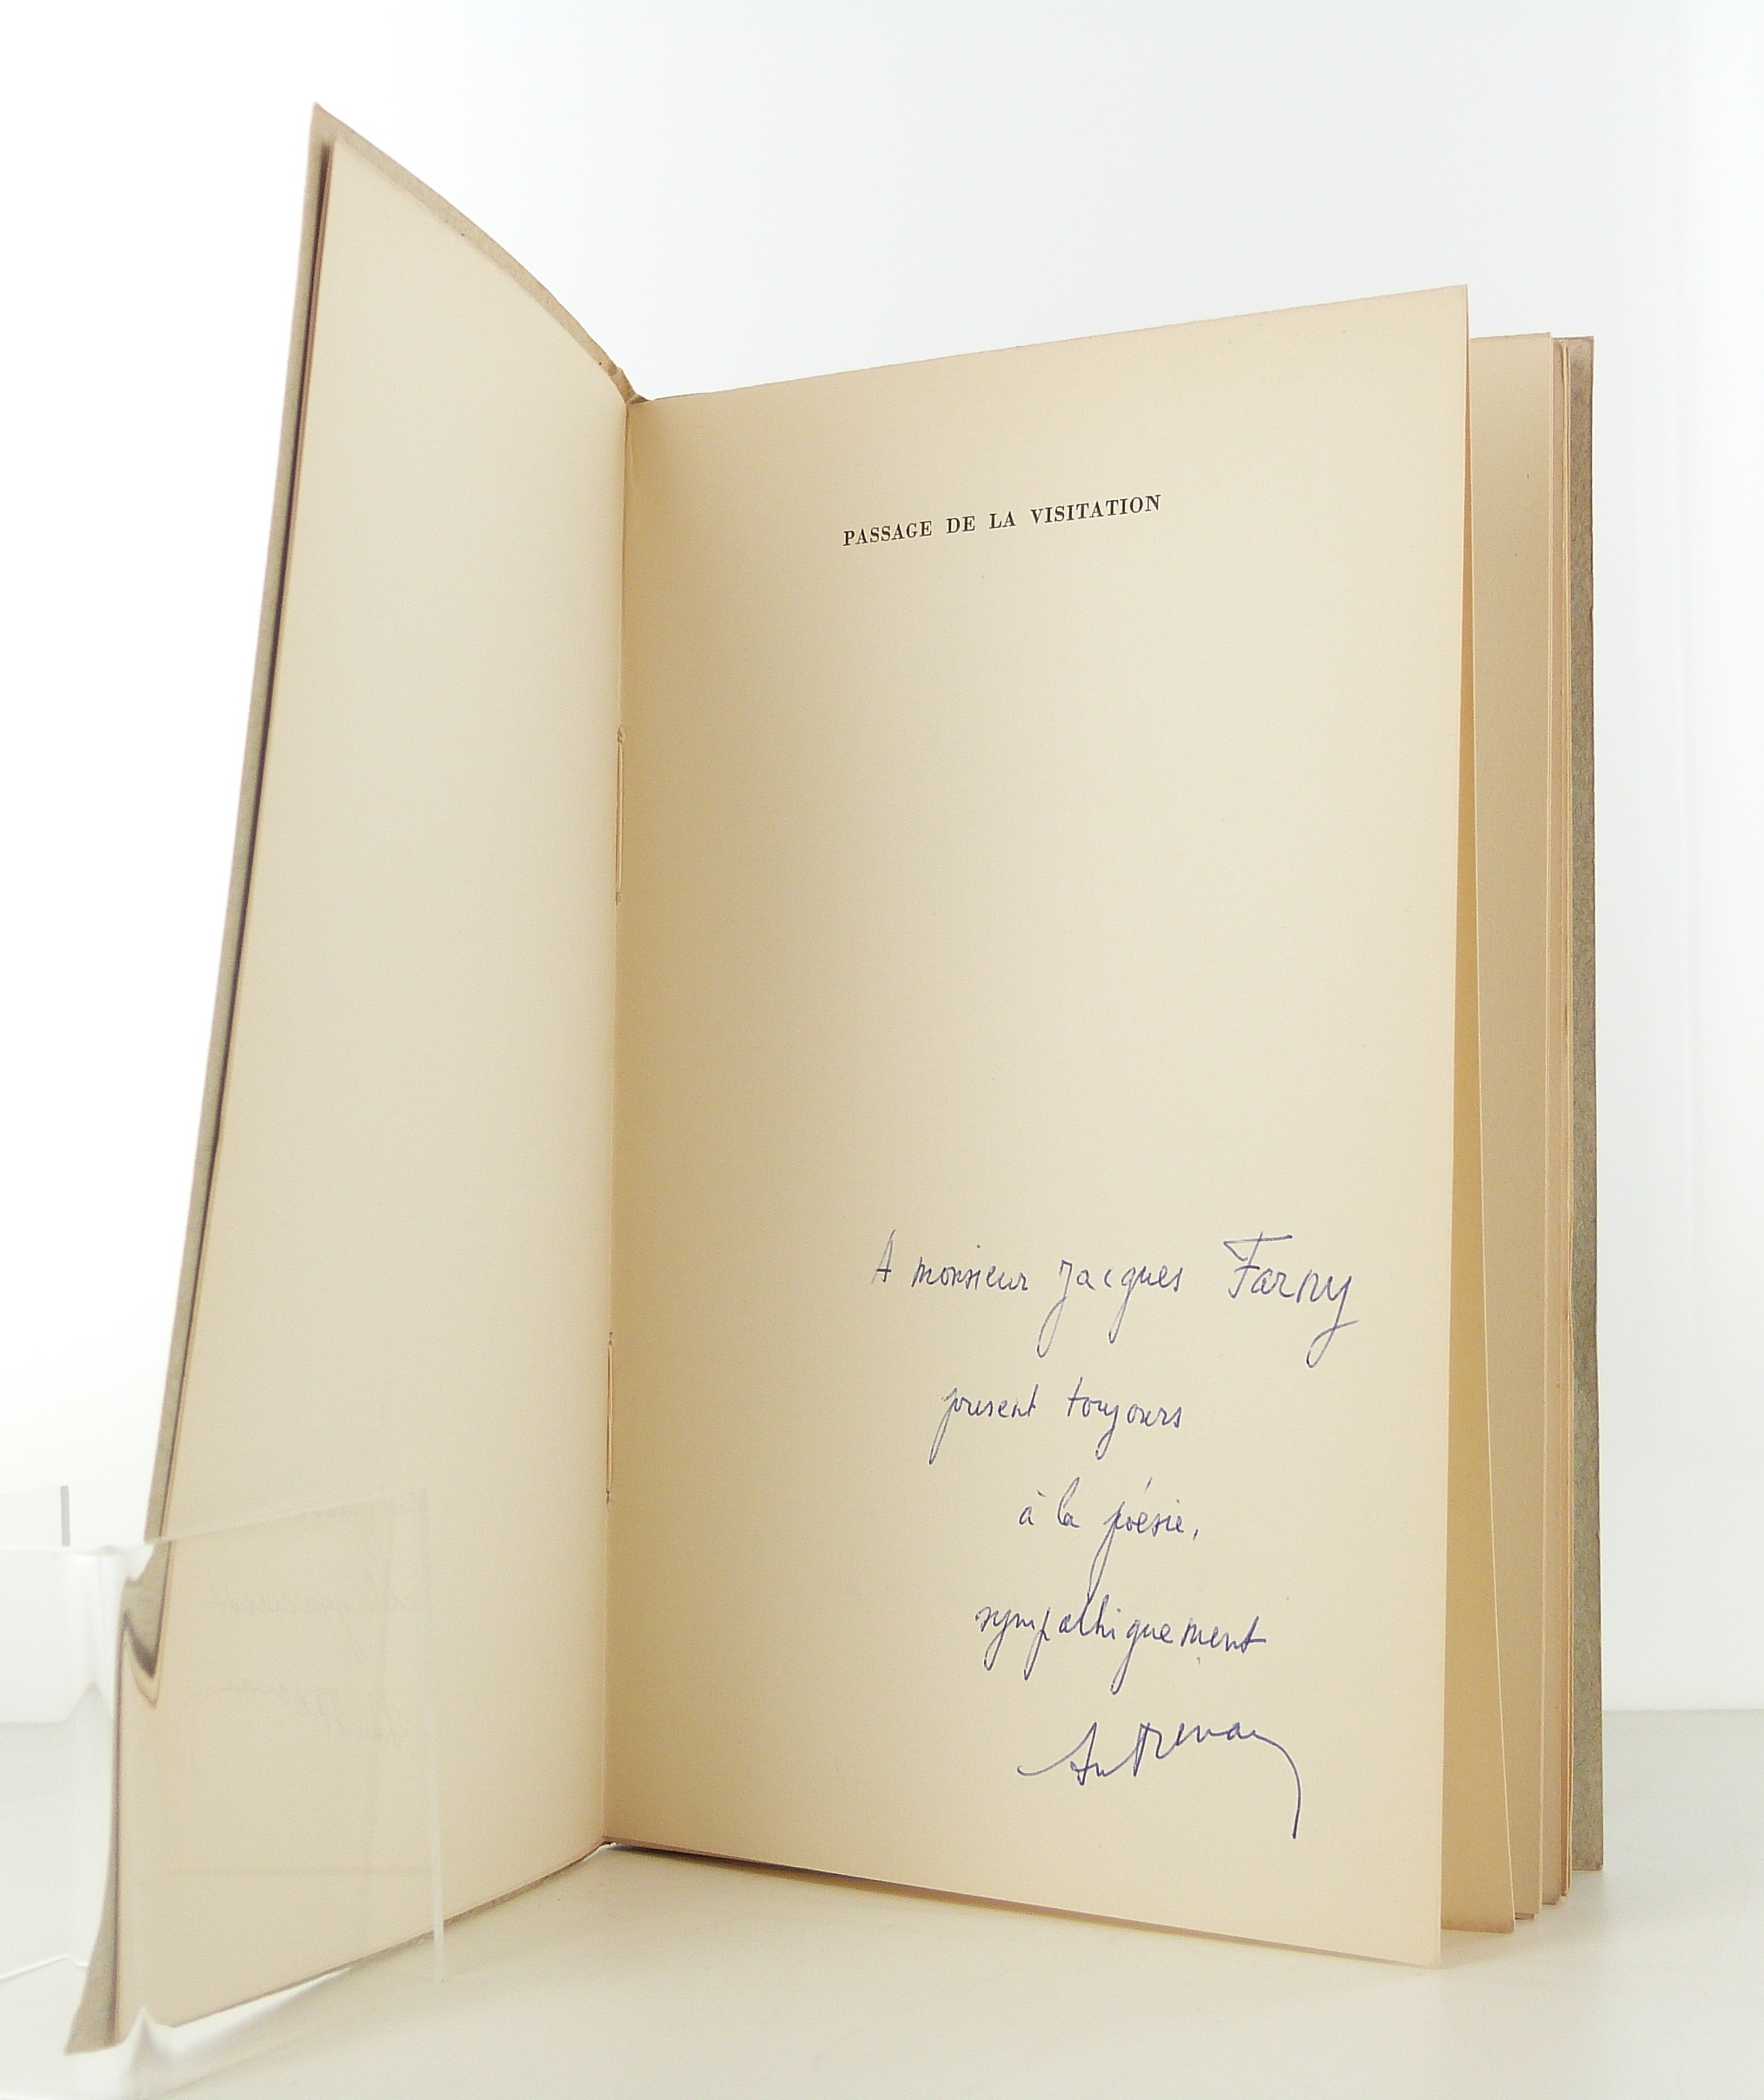 PASSAGE DE LA VISITATION
A monsieur Jacques Farny
present toujours
à la poésie,
sympathiquement